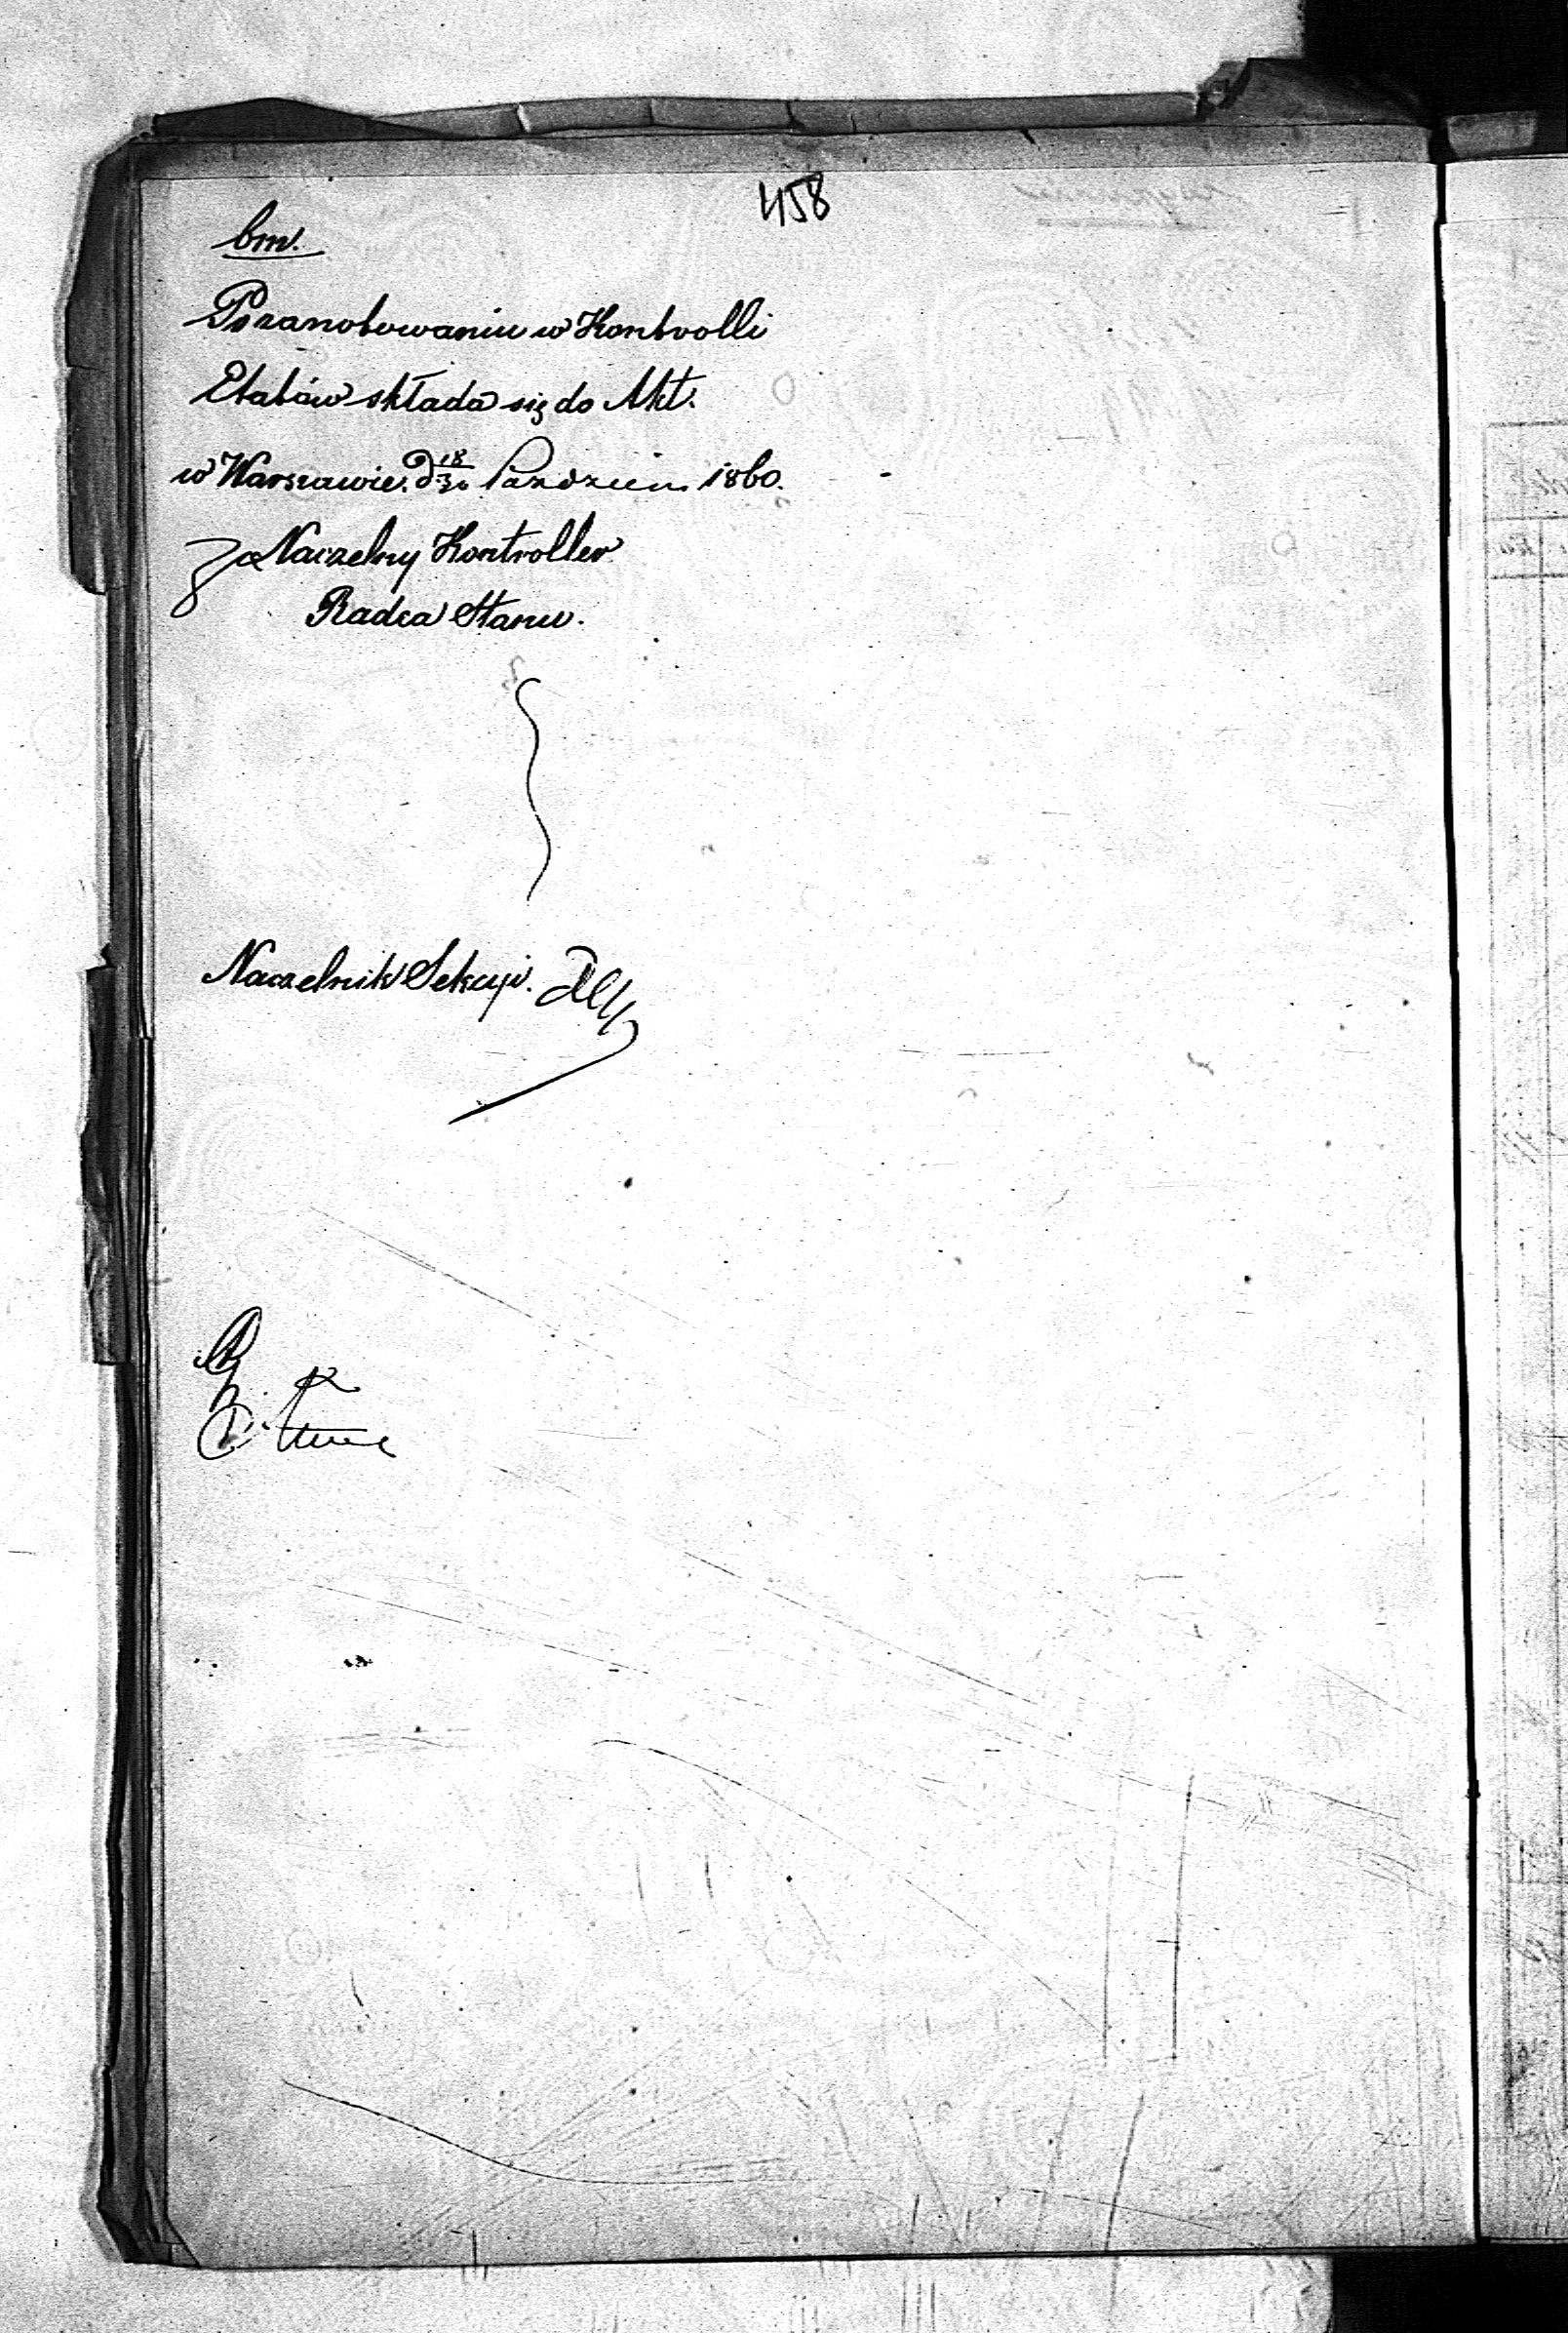 458
bm.
Po zanotowaniu w Kontrolli
Etatów składa się do Akt.
w Warszawie d 18/30 Paździer 1860.
za Naczelny Kontroller
Radca Stanu.
Naczelnik Sekcyi.